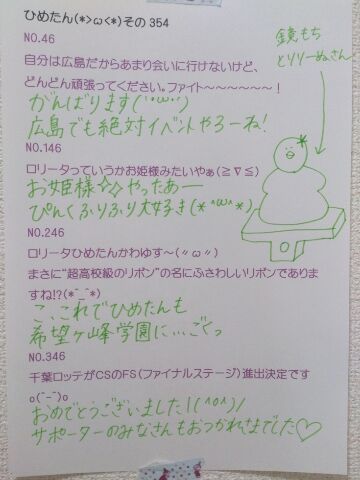 ひめたん(*>ω<*)その354
NO.46
自分は広島だからあまり会いに行けないけど、
どんどん頑張ってください。ファイト〜〜〜〜〜〜！
がんばります(˙ω˙)
広島でも絶対イベントやろーね!
NO.146
ロリータっていうかお姫様みたいやぁ(≧∇≦)
お姫様☆☆やったあー
ぴんくふりふり大好き(*^ω^*)
NO.246
ロリータひめたんかわゆす〜(〃ω〃)
まさに“超高校級のリボン”の名にふさわしいリボンでありま
すね!?(*^_^*)
こ、これでひめたんも
希望ヶ峰学園に…ごくっ
NO.346
千葉ロッテがCSのFS(ファイナルステージ)進出決定です
o(^-^)o
おめでとうございました!(^o^)/
サポーターのみなさんもおつかれさまでした♡
鏡もち
とりりーぬさん